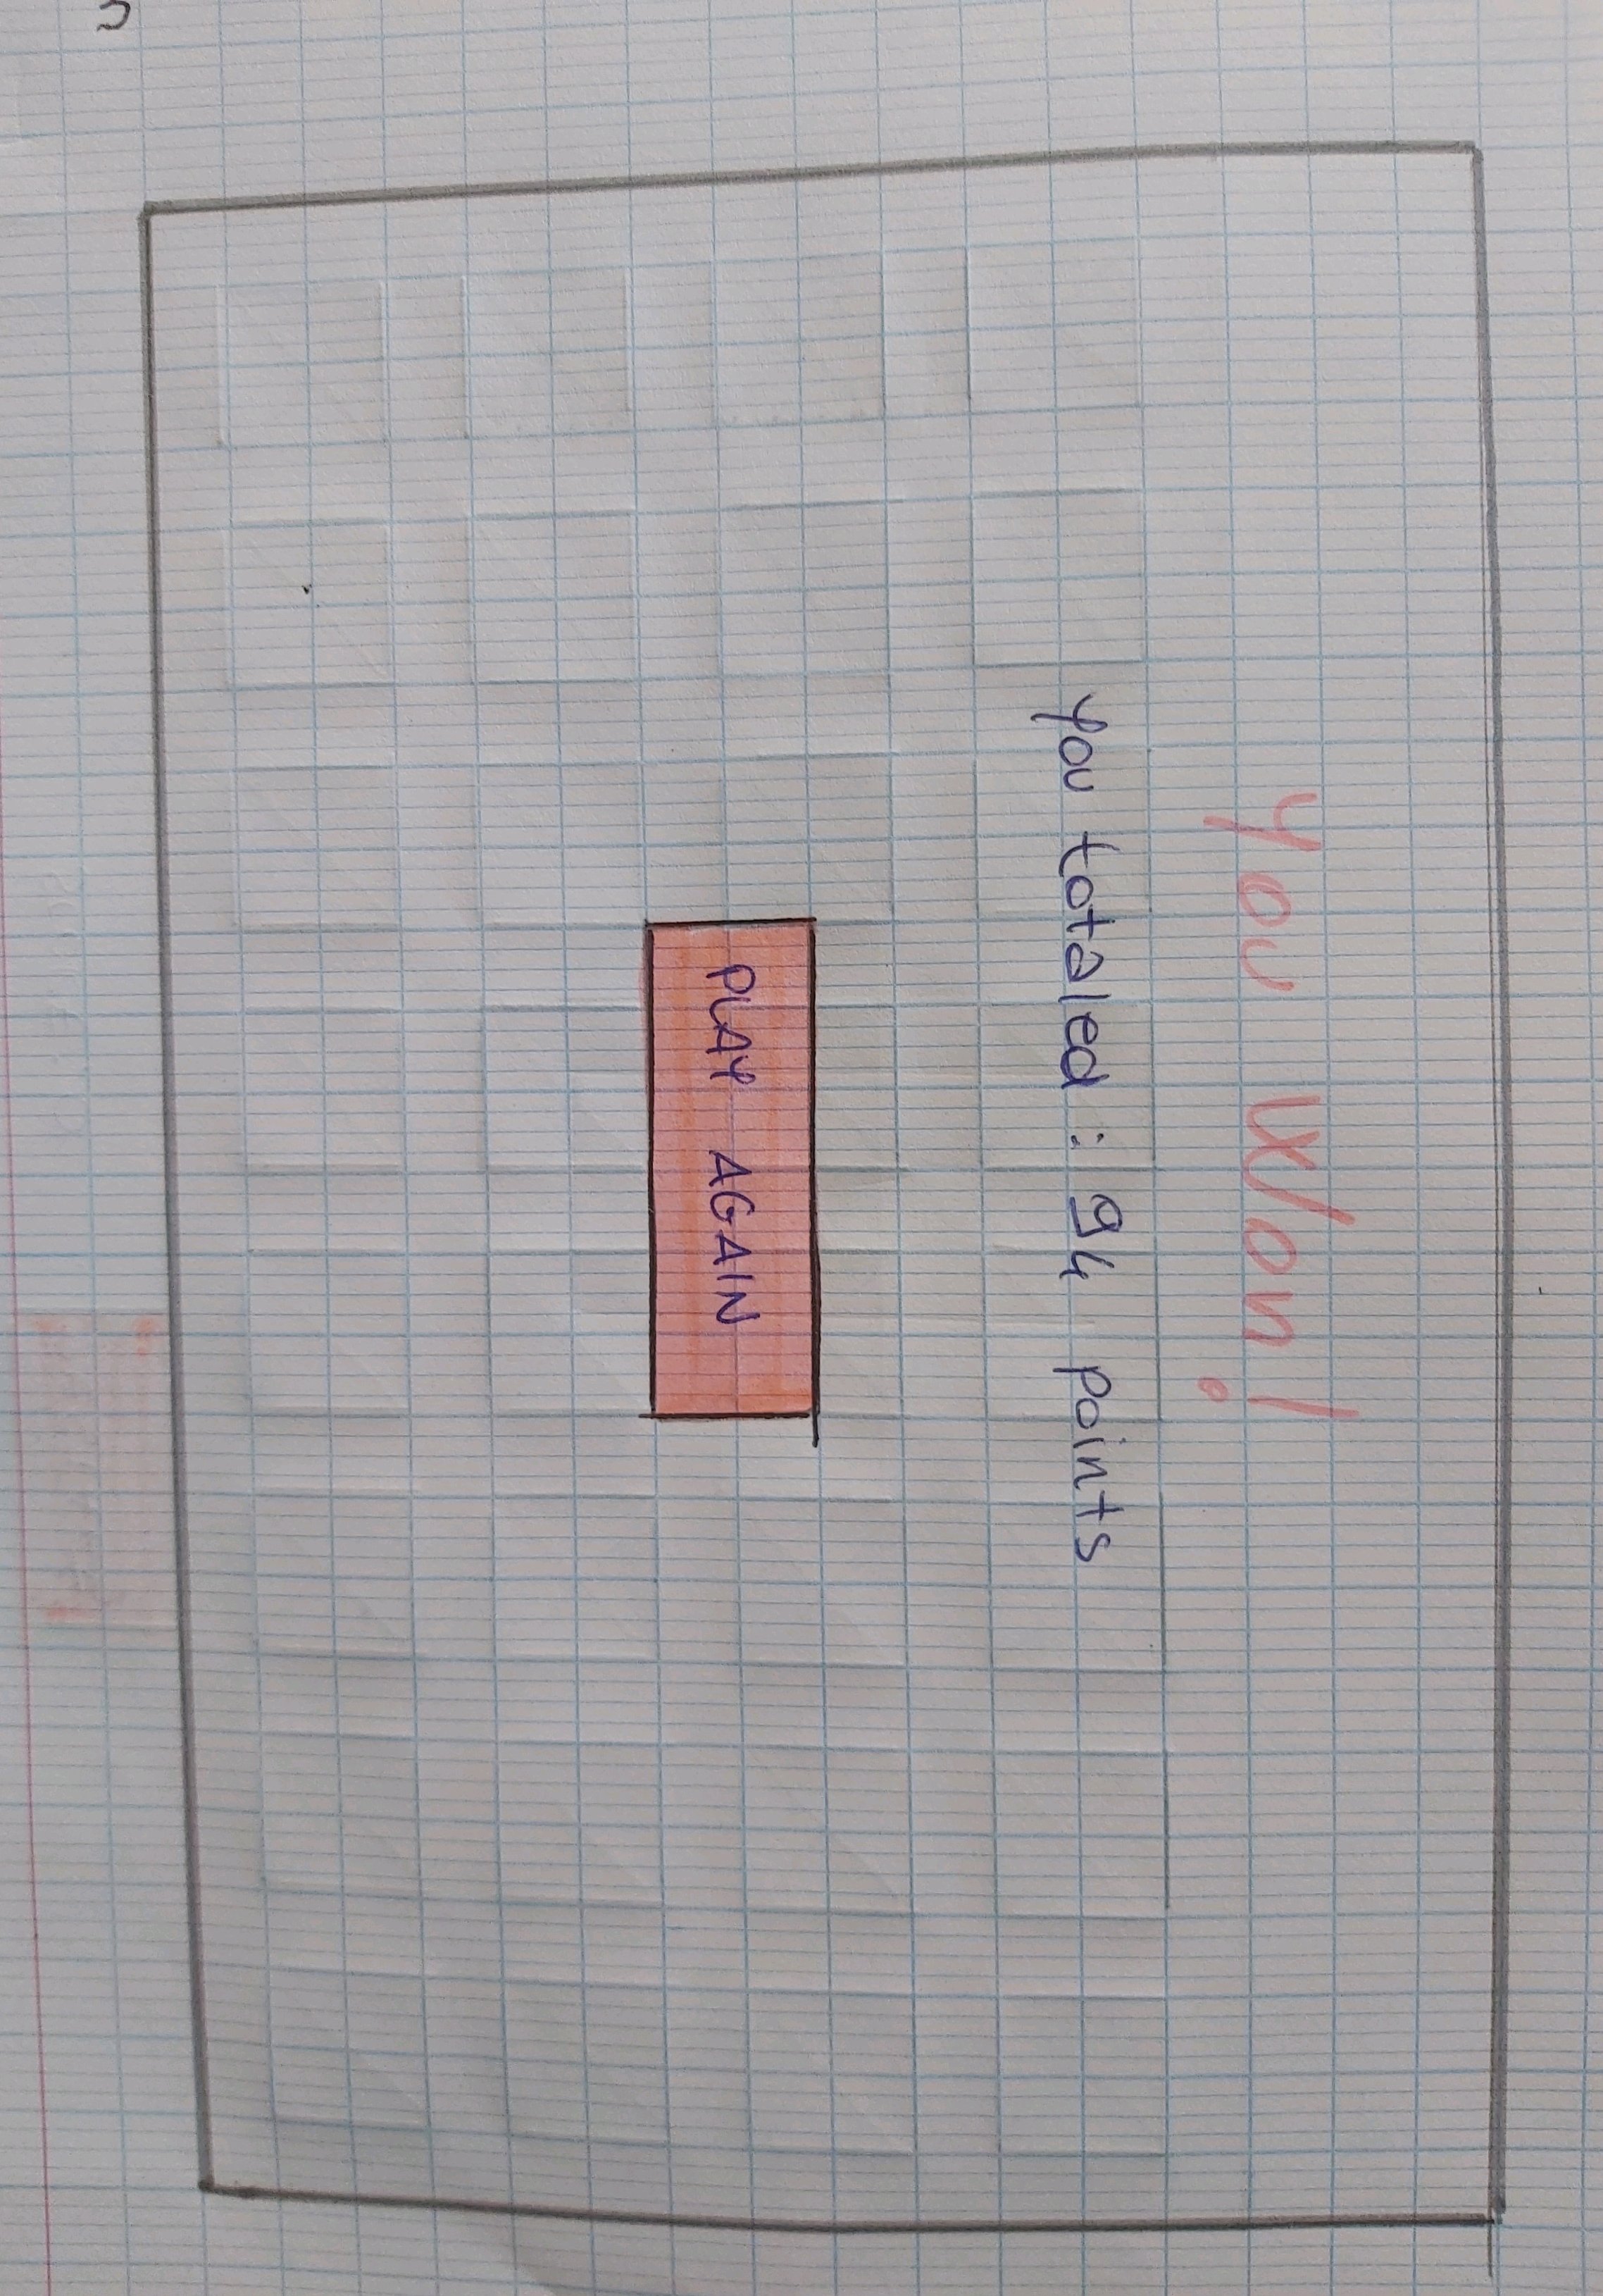 You Won!
you totaled : 94 points
PLAY AGAIN